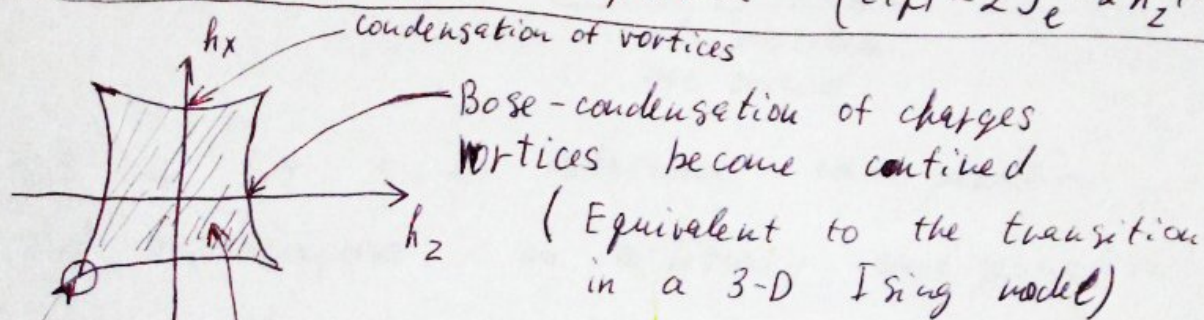 condensation of vortices
hx
Bose-condensation of charges
vortices become confined
hz
( Equivalent to the transition
in a 3-D Ising model)